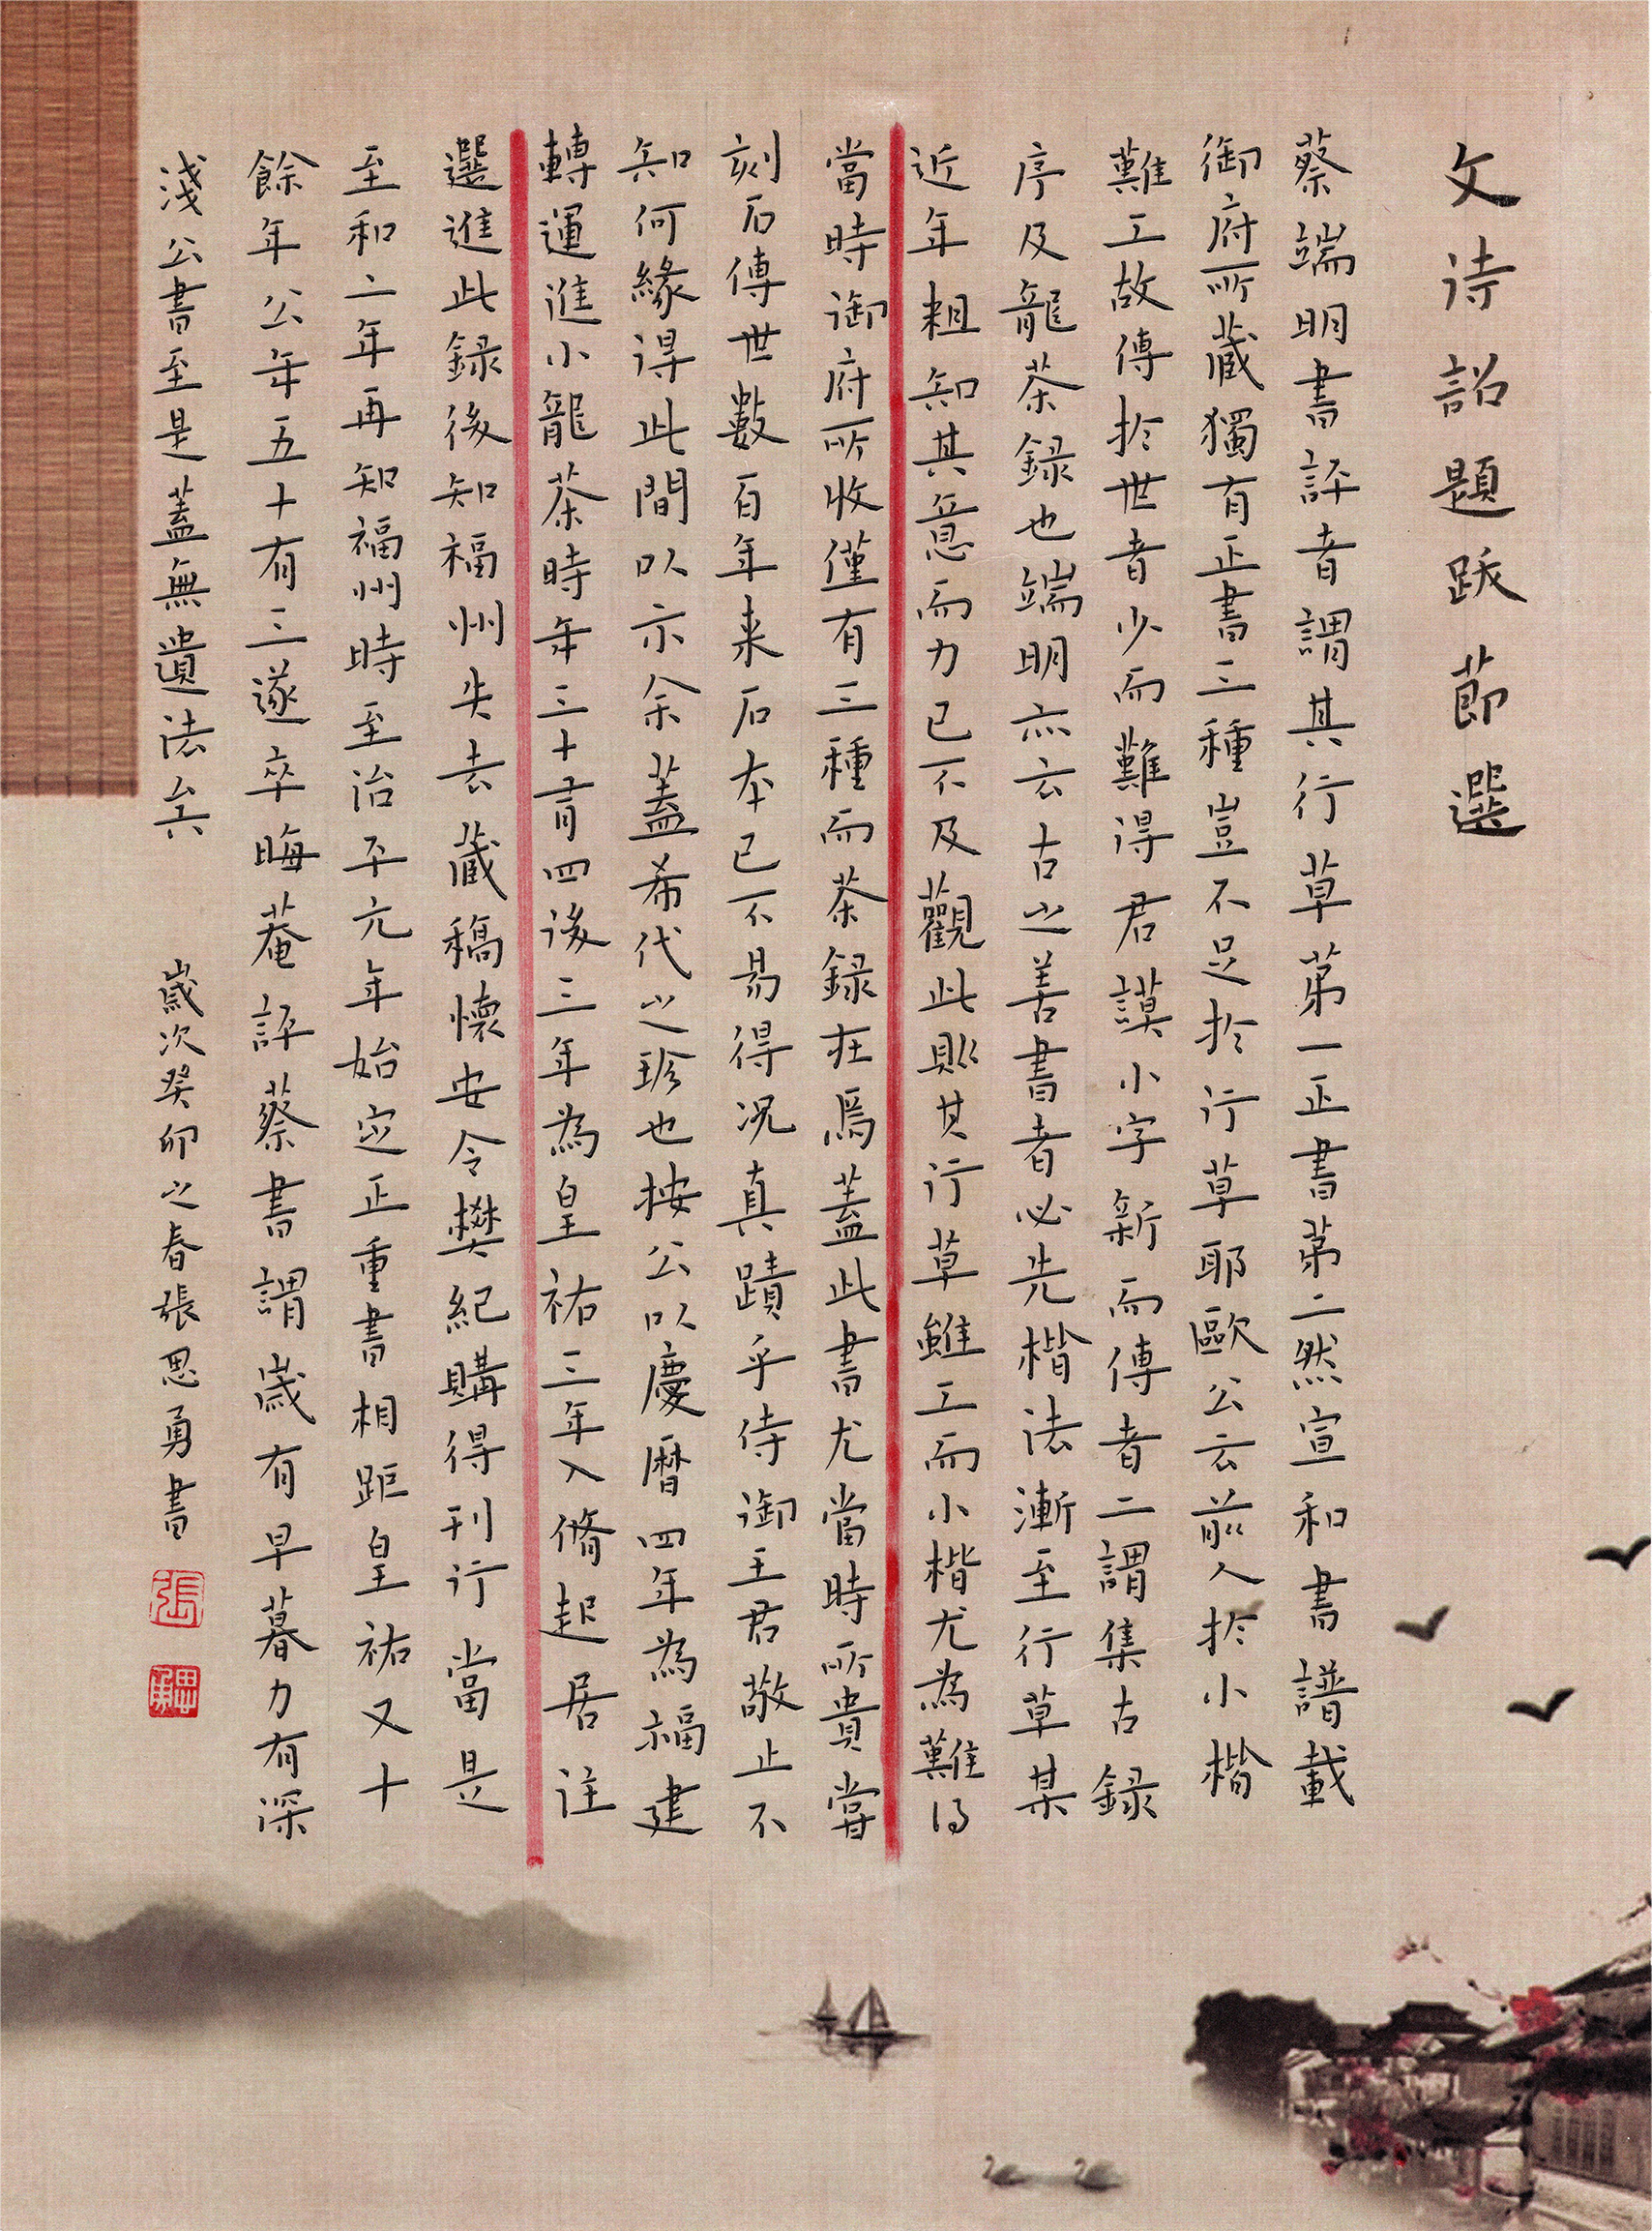 文詩詔題跋節選
蔡端明書評者謂其行草第一正書第二然宣和書譜載
御府所藏獨有正書三種豈不足於行草耶歐公云前人於小楷
難工故傳於世者少而難得君謨小字新而傳者二謂集古錄
序及龍茶録也端明亦云古之善書者必先楷法漸至行草某
近年粗知其意而力已不及觀此則其行草雖工而小楷尤為難得
當時御府所收僅有三種而茶録在焉蓋此書尤當時所貴嘗
刻石傳世數百年来石本已不易得况真蹟乎侍御王君敬止不
知何緣得此間以示余蓋希代之珍也按公以慶曆四年為福建
轉運進小龍茶時年三十有四後三年為皇祐三年入脩起居注
選進此録後知福州失去藏稿懷安令樊紀購得刊行當是
至和二年再知福州時至治平元年始定正重書相距皇祐又十
餘年公年五十有三遂卒晦菴評蔡書謂歲有早暮力有深
淺公書至是蓋無遺法矣 歲次癸卯之春張思勇書
張
思勇